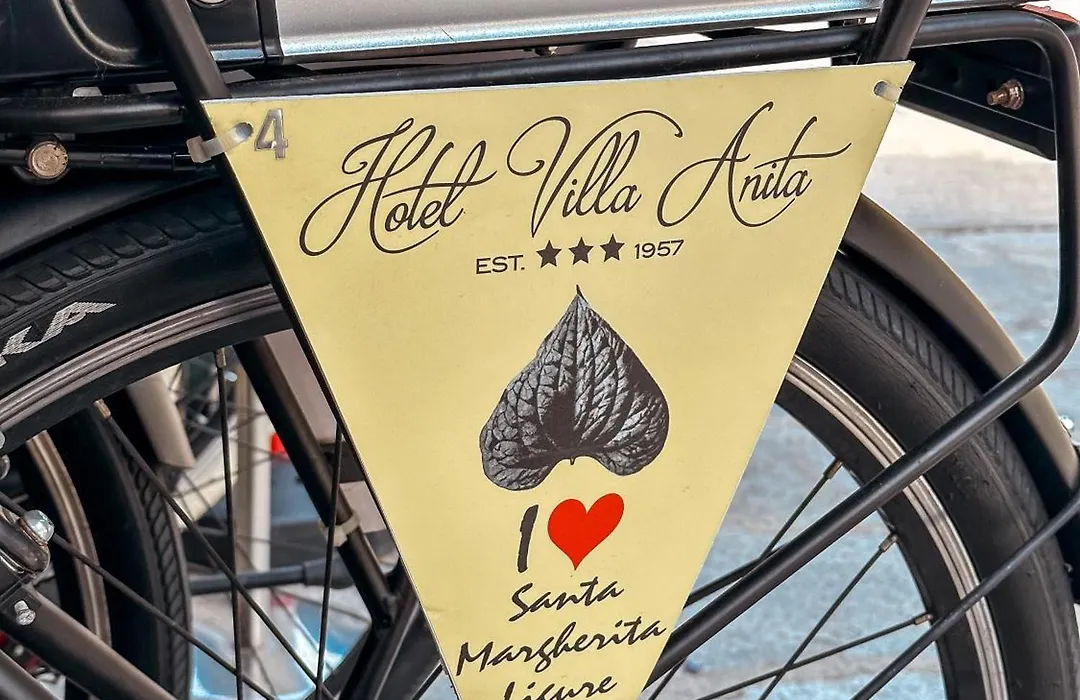 4
Hotel Villa Anita
EST. ★★★ 1957
I ❤
Santa
Margherita
Ligure